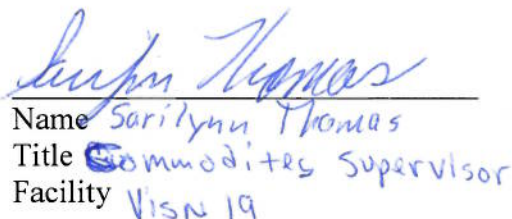 Thomas
Name Sarilynn Thomas
Title Commodites Supervisor
Facility VISN 19